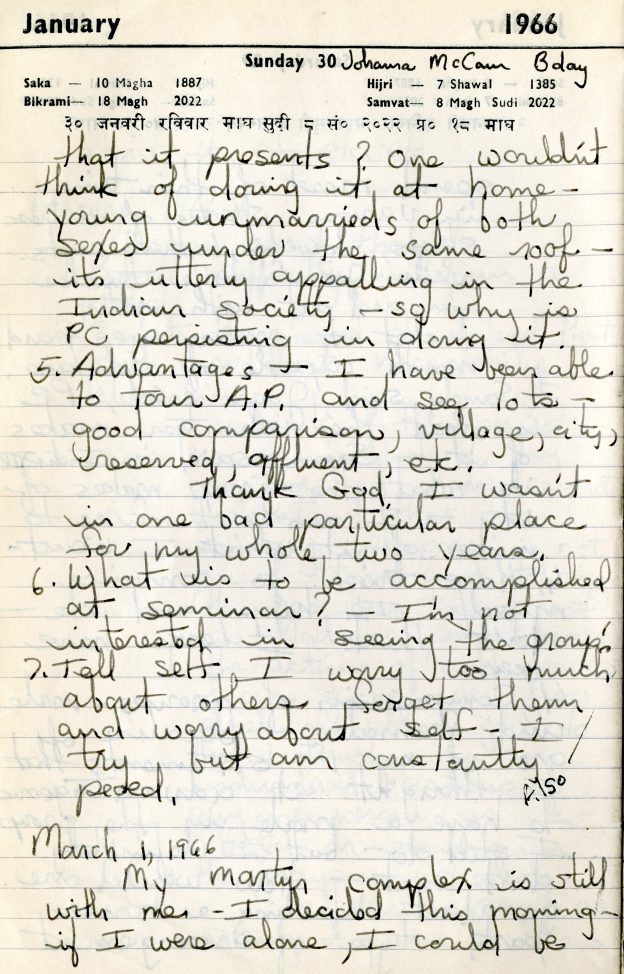 January 1966
Sunday 30 Johanna McCann Bday
Saka — 10 Magha 1887 Hijri — 7 Shawal 1385
Bikrami— 18 Magh 2022 Samvat— 8 Magh Sudi 2022
३० जनवरी रविवार माघ सुदी ८ सं० २०२२ प्र० १८ माघ
that it presents? One wouldn't
think of doing it at home -
young unmarrieds of both
sexes under the same roof -
its utterly appalling in the
Indian Society - so why is
PC persisting in doing it.
5. Advantages - I have been able
to tour A.P. and see lots -
good comparison, village, city,
reserved, affluent, etc.
Thank God, I wasn't
in one bad particular place
for my whole two years.
6. What is to be accomplished
at seminar? - I'm not
interested in seeing the "group"
7. Tell self I worry too much
about others, forget them
and worry about self - I
try but am constantly
peded.
Also
March 1, 1966
My martyr complex is still
with me - I decided this morning -
if I were alone, I could be